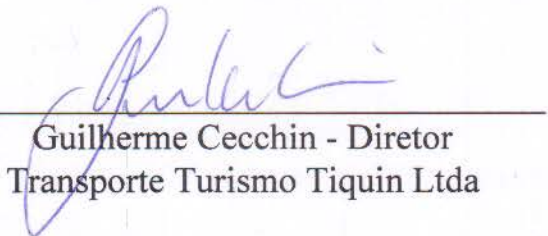 Guilherme Cecchin - Diretor
Transporte Turismo Tiquin Ltda